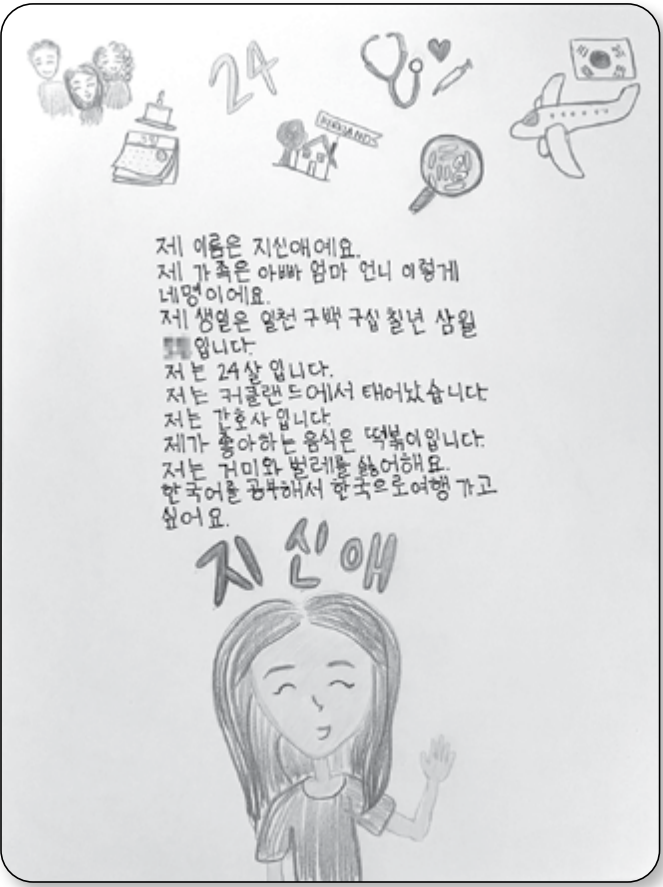 24
KIRKLAND
제 이름은 지신애예요.
제 가족은 아빠 엄마 언니 이렇게
네명이에요.
제 생일은 일천 구백 구십 칠년 삼월
입니다.
저는 24살 입니다.
저는 커클랜드에서 태어났습니다.
저는 간호사 입니다.
제가 좋아하는 음식은 떡볶이입니다.
저는 거미와 벌레를 싫어해요.
한국어를 공부해서 한국으로여행 가고
싶어요.
지신애